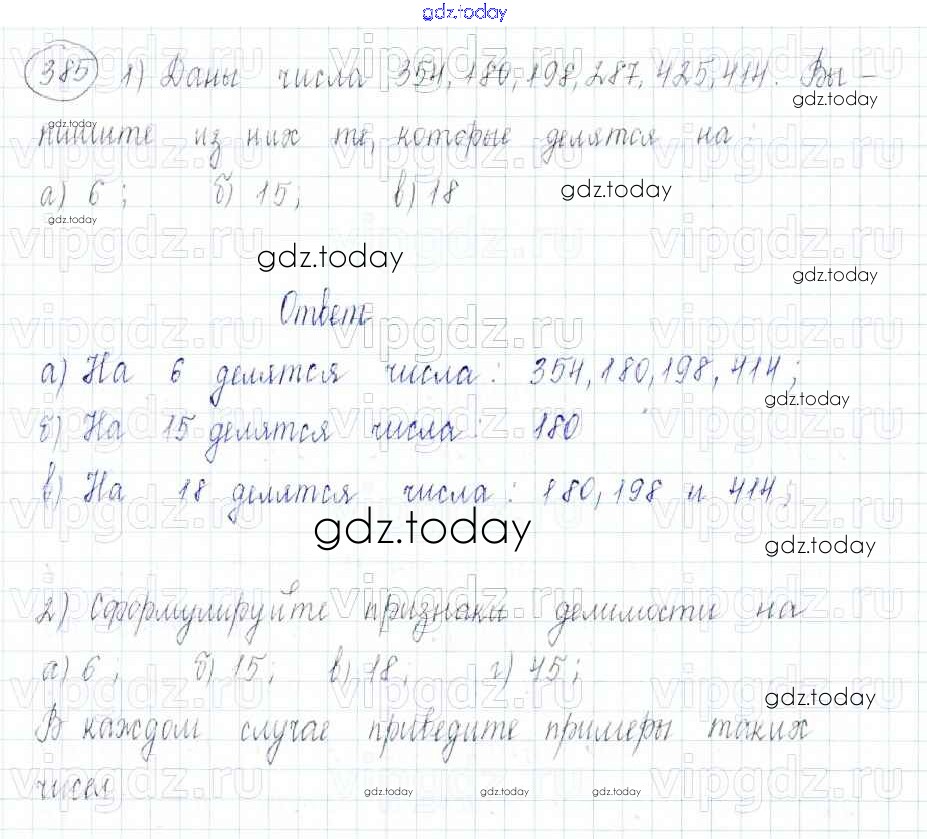 gdz.today
385 1) Даны числа 354, 180, 198, 287, 425, 414. Вы-
gdz.today
gdz.today
пишите из них те, которые делятся на:
а) 6; б) 15; в) 18
gdz.today
gdz.today
gdz.today
gdz.today
Ответ
а) На 6 делятся числа: 354, 180, 198, 414;
gdz.today
б) На 15 делятся числа: 180
в) На 18 делятся числа: 180, 198 и 414;
gdz.today
gdz.today
2) Сформулируйте признаки делимости на
а) 6; б) 15; в) 18; г) 45;
gdz.today
В каждом случае приведите примеры таких
чисел
gdz.today gdz.today gdz.today
vipgdz.ru